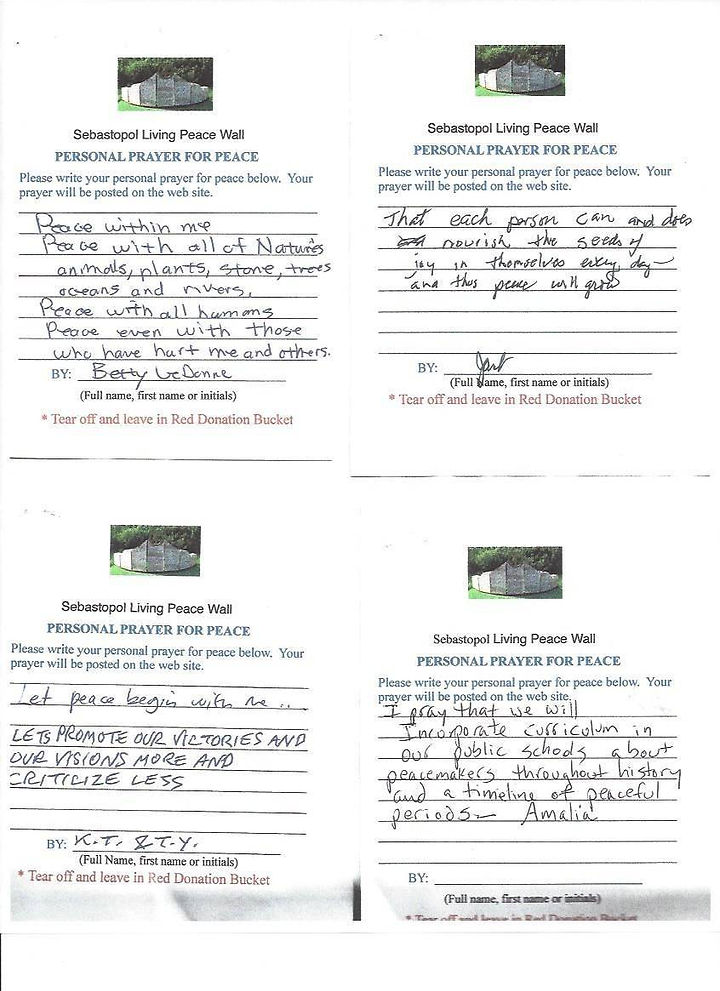 Sebastopol Living Peace Wall
PERSONAL PRAYER FOR PEACE
Please write your personal prayer for peace below. Your
prayer will be posted on the web site.
Peace within me
Peace with all of Natures
animals, plants, stone, trees
oceans and rivers.
Peace with all humans
Peace even with those
who have hurt me and others.
BY: Betty
(Full name, first name or initials)
* Tear off and leave in Red Donation Bucket
Sebastopol Living Peace Wall
PERSONAL PRAYER FOR PEACE
Please write your personal prayer for peace below. Your
prayer will be posted on the web site.
That each person can and does
nourish the seeds of
joy in themselves every day—
and thus peace will grow
BY:
(Full Name, first name or initials)
* Tear off and leave in Red Donation Bucket
Sebastopol Living Peace Wall
PERSONAL PRAYER FOR PEACE
Please write your personal prayer for peace below. Your
prayer will be posted on the web site.
Let peace begin with me ..
LETS PROMOTE OUR VICTORIES AND
OUR VISIONS MORE AND
CRITICIZE LESS
BY: K.T. & T.Y.
(Full Name, first name or initials)
* Tear off and leave in Red Donation Bucket
Sebastopol Living Peace Wall
PERSONAL PRAYER FOR PEACE
Please write your personal prayer for peace below. Your
prayer will be posted on the web site.
I pray that we will
Incorporate curriculum in
our public schools about
peacemakers throughout history
and a timeline of peaceful
periods— Amalia
BY:
(Full name, first name or initials)
* Tear off and leave in Red Donation Bucket